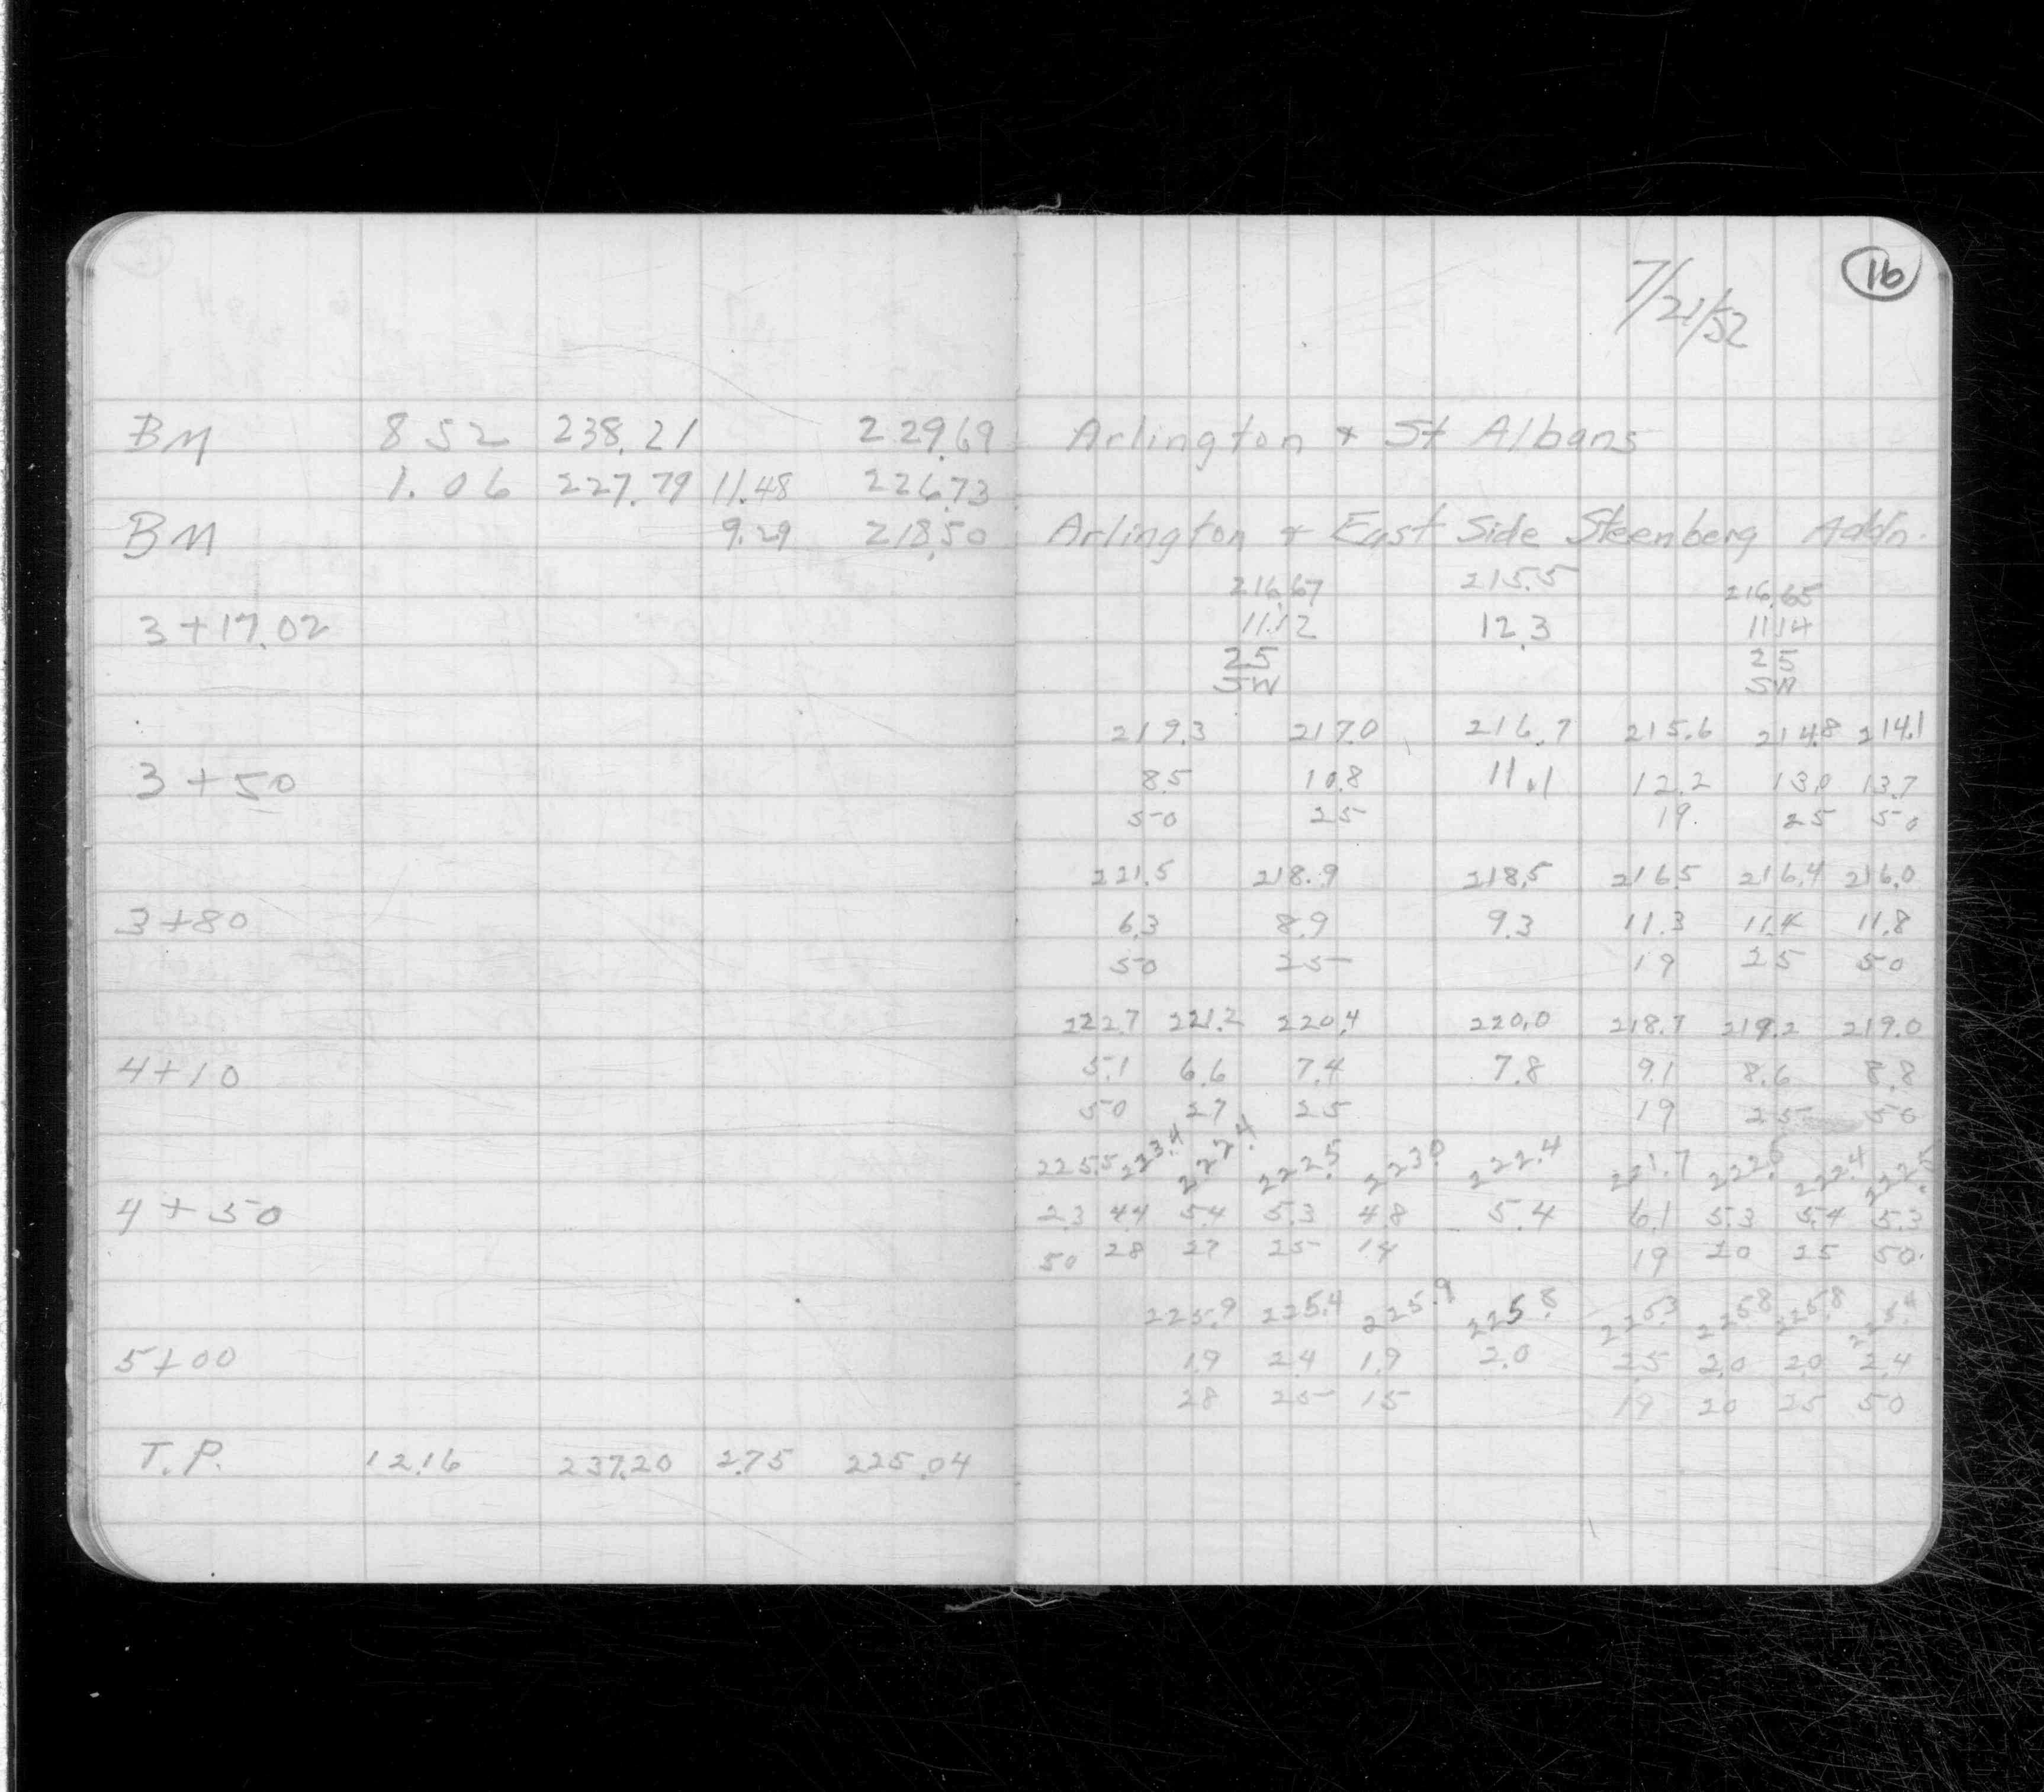 16
7/21/52
BM 8 52 238.21 229.69 Arlington & St Albans
1.06 227.79 11.48 226.73
BM 9.29 218.50 Arlington & East Side Steenberg Addn.
216.67 215.5 216.65
3+17.02 11.12 12.3 11.14
25 25
SW SW
219.3 217.0 216.7 215.6 214.8 214.1
3+50 8.5 10.8 11.1 12.2 13.0 13.7
50 25 19. 25 50
221.5 218.9 218.5 216.5 216.4 216.0
3+80 6.3 8.9 9.3 11.3 11.4 11.8
50 25 19 25 50
222.7 221.2 220.4 220.0 218.7 219.2 219.0
4+10 5.1 6.6 7.4 7.8 9.1 8.6 8.8
50 27 25 19 25 50
225.5 223.4 222.4 222.5 223.0 222.4 221.7 222.5 222.4 222.5
4+50 2.3 4.4 5.4 5.3 4.8 5.4 6.1 5.3 5.4 5.3
50 28 27 25 14 19 20 25 50.
225.9 225.4 225.9 225.8 225.3 225.8 225.8 225.4
5+00 1.9 2.4 1.9 2.0 2.5 2.0 2.0 2.4
28 25 15 19 20 25 50
T.P. 12.16 237.20 2.75 225.04